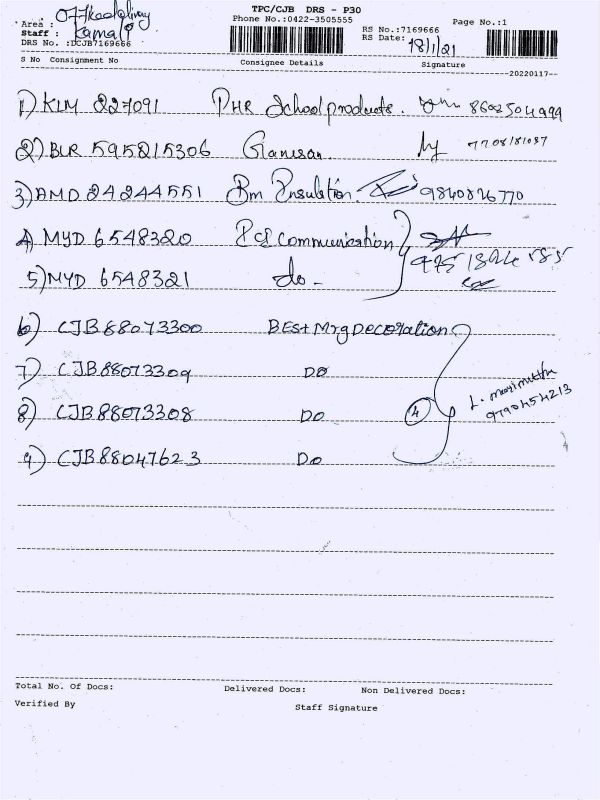 TPC/CJB DRS - P30
Phone No.:0422-3505555 Page No.:1
Area : Off
Staff : Kamal RS No.:7169666
DRS No. :DCJB7169666 RS Date: 18/1/21
S No Consignment No Consignee Details Signature
--20220117--
1) KLM 227091 PHR School products. 8602504999
2) BLR 595215306 Ganesan. 7708181087
3) AMD 24244551 Bm Insulation. 9840826770
4) MYD 6548320 PCS Communication
5) MYD 6548321 do -
6) CJB88073300 BEst MrgDecoration
7) CJB88073309 DO
8) CJB88073308 DO 4 L. marimuthu 9790454213
9) CJB88047623 DO
Total No. Of Docs: Delivered Docs: Non Delivered Docs:
Verified By Staff Signature